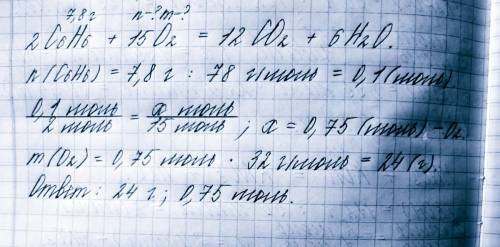 7,8 г n-? m-?
2C6H6 + 15O2 = 12CO2 + 6H2O.
n(C6H6) = 7,8 г : 78 г/моль = 0,1 (моль).
0,1 моль / 2 моль = x моль / 15 моль ; x = 0,75 (моль) - O2.
m(O2) = 0,75 моль · 32 г/моль = 24 (г).
Ответ: 24 г; 0,75 моль.